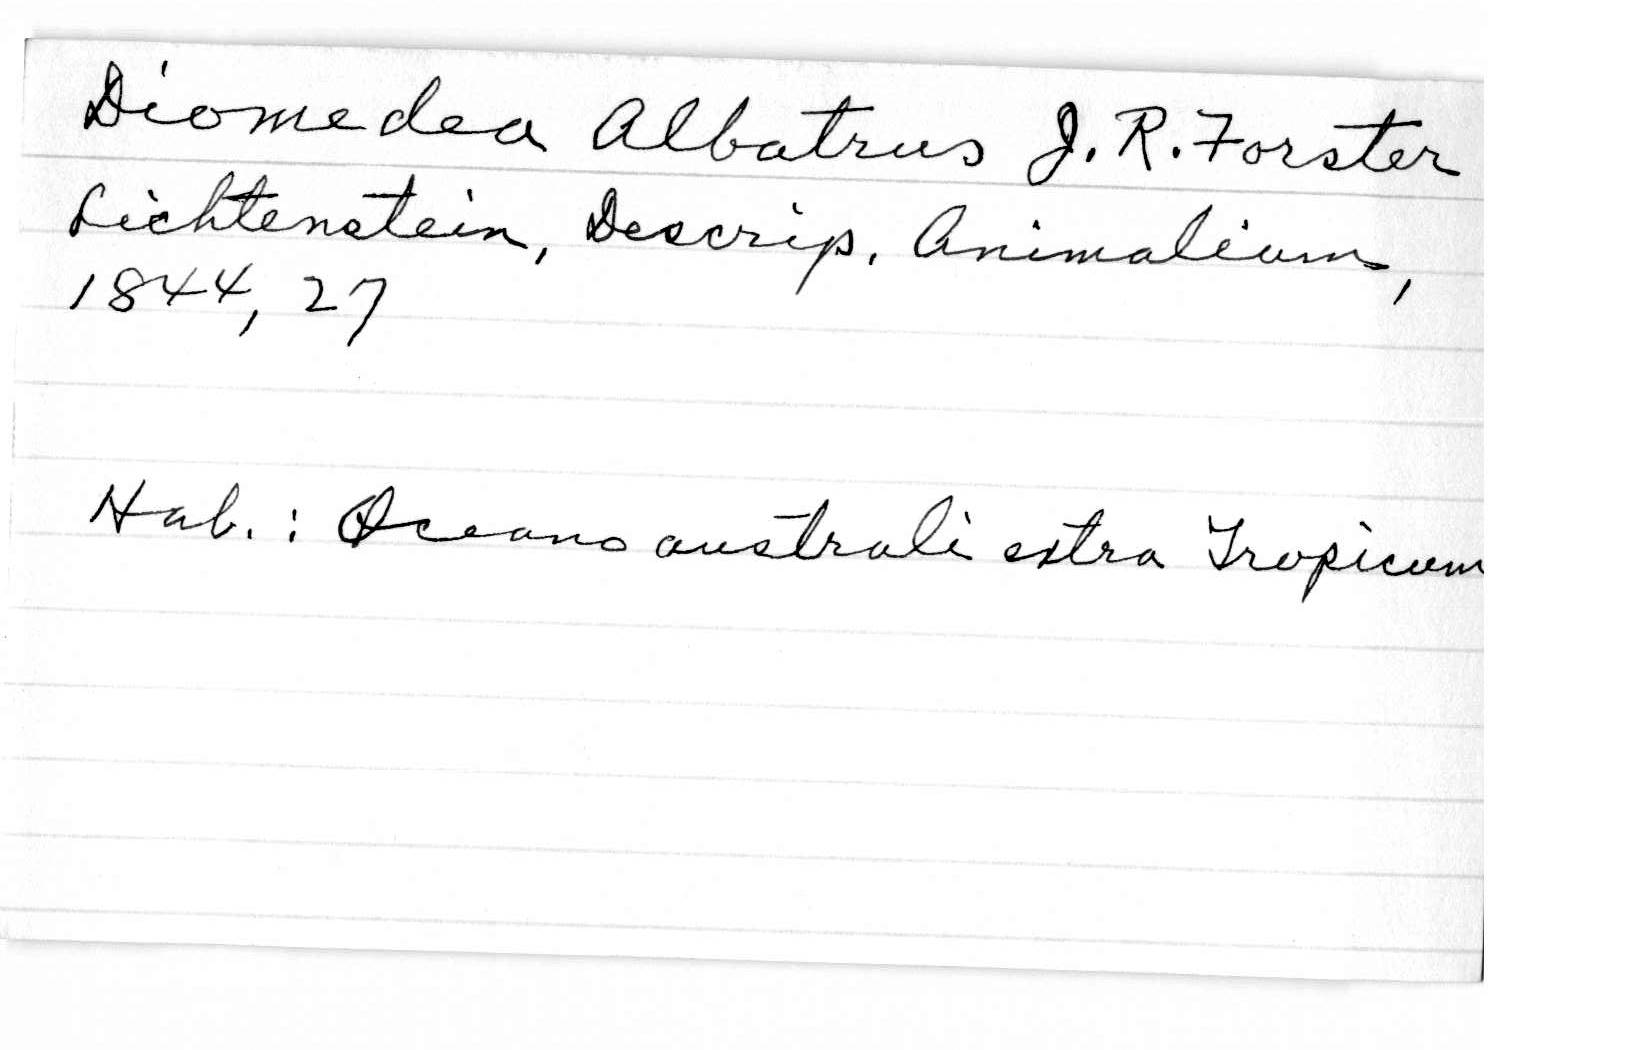 Diomedea Albatrus J. R. Forster
Lichtenstein, Descrip. Animalium,
1844, 27
Hab. : Oceano australi extra Tropicum